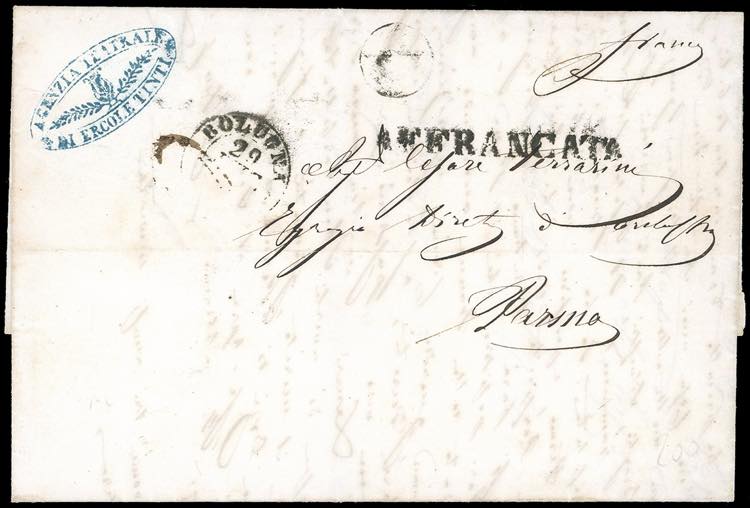 AGENZIA TEATRALE
DI ERCOLE TINTI
franca
BOLOGNA
29
AFFRANCATA
Cesare Ferrarini
Egregio Dirett d'orchestra
Parma
200